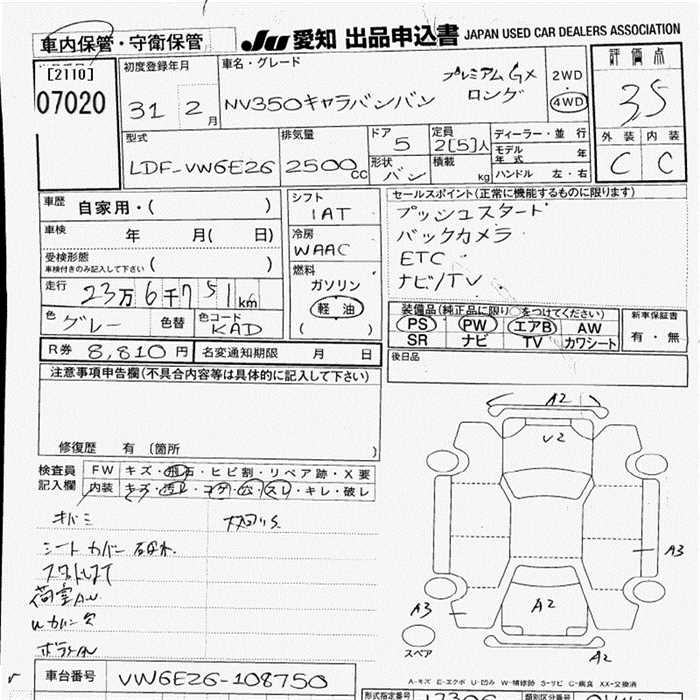 車内保管・守衛保管
JU 愛知 出品申込書 JAPAN USED CAR DEALERS ASSOCIATION
[2110]
07020
初度登録年月
31 2月
車名・グレード
NV350キャラバンバン
プレミアムGX
ロング
2WD
4WD
評価点
3.5
外装 内装
C C
型式
LDF-VW6E26
排気量
2500cc
ドア
5
形状
バン
定員
2[5]人
積載
kg
ディーラー・並行
モデル年式 年
ハンドル 左・右
車歴 自家用・( )
車検 年 月( 日)
受検形態
車検付きのみ記入して下さい ( )
走行 23万6千751km
色 グレー 色替 色コード KAD
シフト
IAT
冷房
WAAC
燃料
ガソリン
軽油
( )
セールスポイント(正常に機能するものに限ります)
プッシュスタート
バックカメラ
ETC
ナビ/TV
装備品(純正品に限り○をつけてください)
PS PW エアB AW
SR ナビ TV カワシート
新車保証書
有・無
R券 8,810円 名変通知期限 月 日
後日品
注意事項申告欄(不具合内容等は具体的に記入して下さい)
修復歴 有 〔箇所 〕
検査員記入欄
FW キズ・飛石・ヒビ割・リペア跡・X要
内装 キズ・汚レ・コゲ・穴・スレ・キレ・破レ
シートカバー
A2
U2
A3
A2
A3
A2
スペア
A-キズ E-エクボ U-凹み W-補修跡 S-サビ C-腐食 XX-交換済
車台番号 VW6E26-108750
型式指定番号 17306 類別区分番号